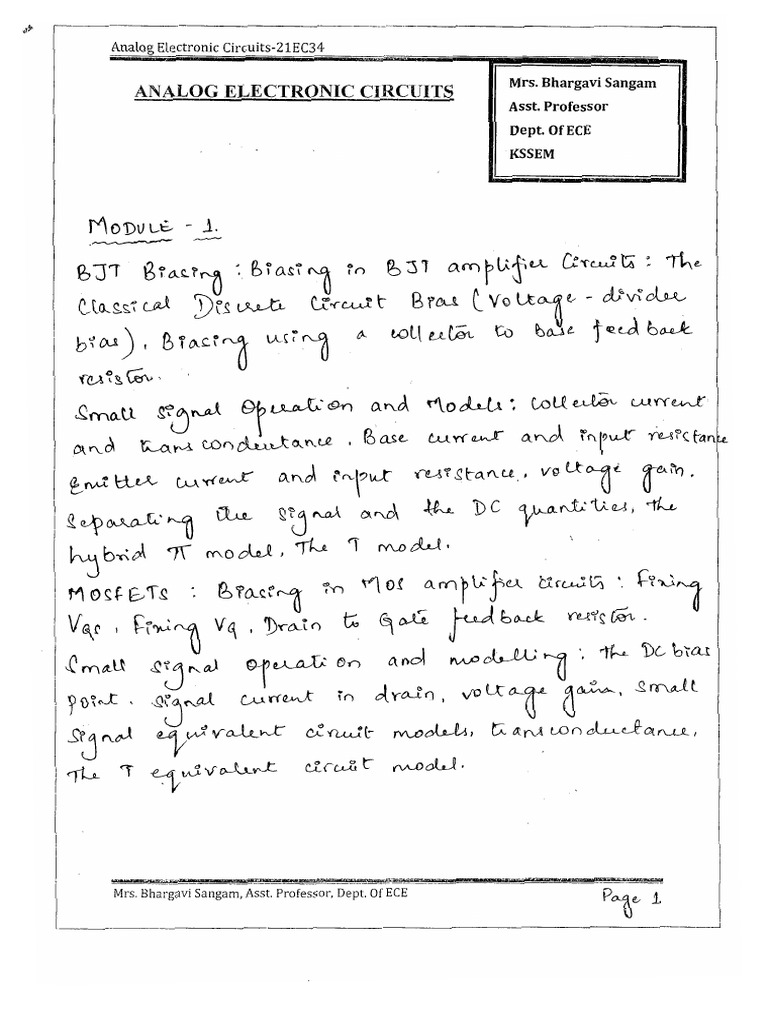 Analog Electronic Circuits-21EC34
ANALOG ELECTRONIC CIRCUITS
Mrs. Bhargavi Sangam
Asst. Professor
Dept. Of ECE
KSSEM
MODULE - 1.
BJT Biasing : Biasing in BJT amplifier Circuits : The
Classical Discrete Circuit Bias (Voltage - divider
bias), Biasing using a collector to base feedback
resistor.
Small signal Operation and Models : Collector current
and transconductance, Base current and input resistance
Emitter current and input resistance, voltage gain,
Separating the signal and the DC quantities, The
hybrid π model, The T model.
MOSFETS : Biasing in MOS amplifier circuits : Fixing
VGS, Fixing VG, Drain to Gate feedback resistor.
Small signal operation and modelling : The DC bias
point, signal current in drain, voltage gain, small
signal equivalent circuit models, transconductance,
The T equivalent circuit model.
Mrs. Bhargavi Sangam, Asst. Professor, Dept. Of ECE
Page 1